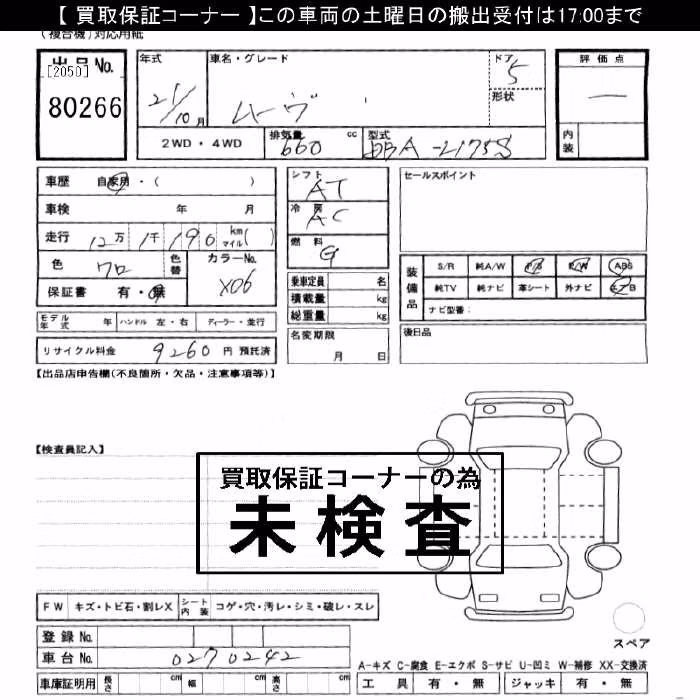 【 買取保証コーナー 】この車両の土曜日の搬出受付は17:00まで
(複合機)対応用紙
出品No. [2050] 80266
年式 21/10月
車名・グレード ムーヴ
ドア 5
形状
評価点 ―
内装
2WD・4WD
排気量 660 cc
型式 DBA-L175S
車歴 自家用・( )
車検 年 月
走行 12万 1千 190 km マイル( )
色 クロ 色替
カラーNo. X06
保証書 有・無
シフト AT
冷房 AC
燃料 G
乗車定員 名
積載量 kg
総重量 kg
名変期限 月 日
セールスポイント
装備品 S/R 純A/W P/S P/W ABS
純TV 純ナビ 革シート 外ナビ エアB
ナビ型番:
後日品
モデル年式 年 ハンドル 左・右 ディーラー・並行
リサイクル料金 9260 円 預託済
【出品店申告欄(不良箇所・欠品・注意事項等)】
【検査員記入】
買取保証コーナーの為
未検査
FW キズ・トビ石・割レX シート内装 コゲ・穴・汚レ・シミ・破レ・スレ
登録No.
車台No. 0270242
車庫証明用 長さ cm 幅 cm 高さ cm
スペア
A-キズ C-腐食 E-エクボ S-サビ U-凹ミ W-補修 XX-交換済
工具 有・無 ジャッキ 有・無